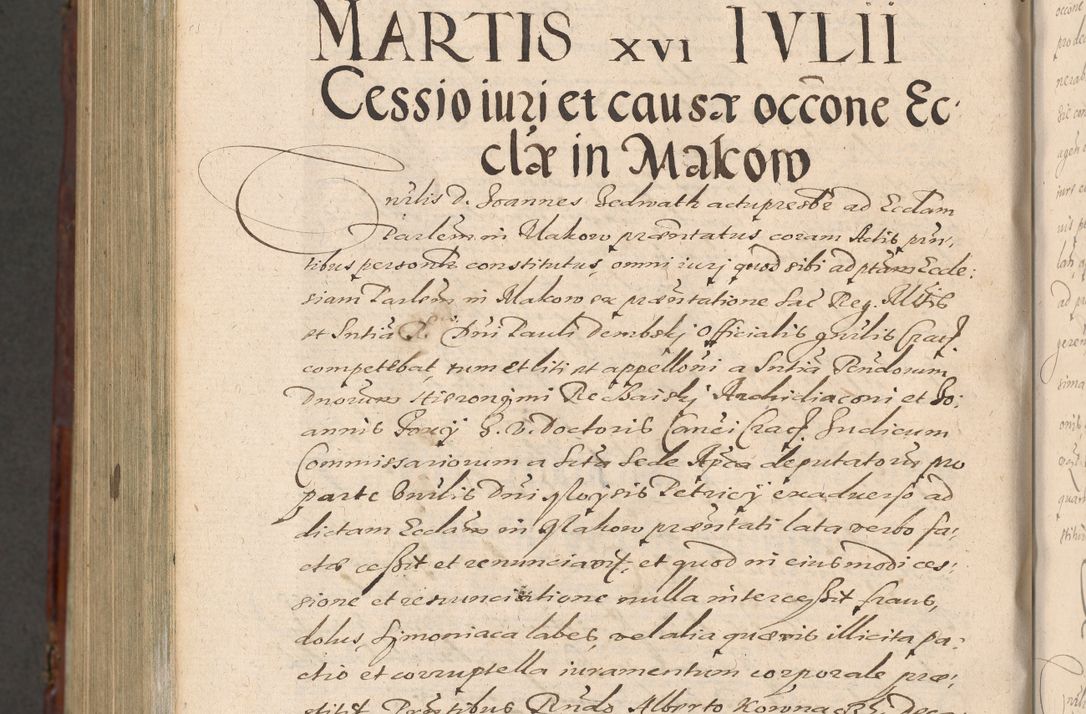 MARTIS XVI IVLII
Cessio iuri et causæ occōne Ec-
clæ in Makow
Vnilis D. Joannes Gedwath actu presbr ad Ecclam
Parlem in Makow præntatus coram Actis prin,
tibus personlr constitutus, omni iuri quod sibi ad ptam Eccle:
siam Parlem in Makow ex præntatione Sac Reg. Mtis
et Sntia Dni Pauli Dembskj Officialis gnilis Crac
competebat, tum et liti et appelloni a Sntia Rndorum
Dnorum Hieronymi Jo:
annis Foxij I. V. Doctoris Canci Crac Iudicum
Commissariorum a Scta Sede Aplca deputatorum pro
parte Vnilis Dni Moysis Petricij ex aduerso ad
dictam Ecclam in Makow præntati lata verbo fa:
cto cessit et renunciavit, et quod in eiusmodi ces:
sione et renunciatione nulla intercessit fraus,
dolus, Simoniaca labes, vel alia quævis illicita pa:
ctio et corruptella iuramentum corporale præ:
stitit Præsentibus Rndo Alberto